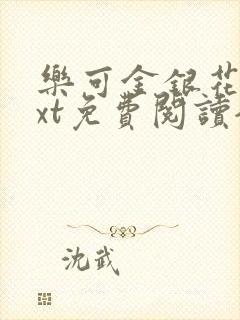 樂可金銀花
xt免費閱讀
沈武